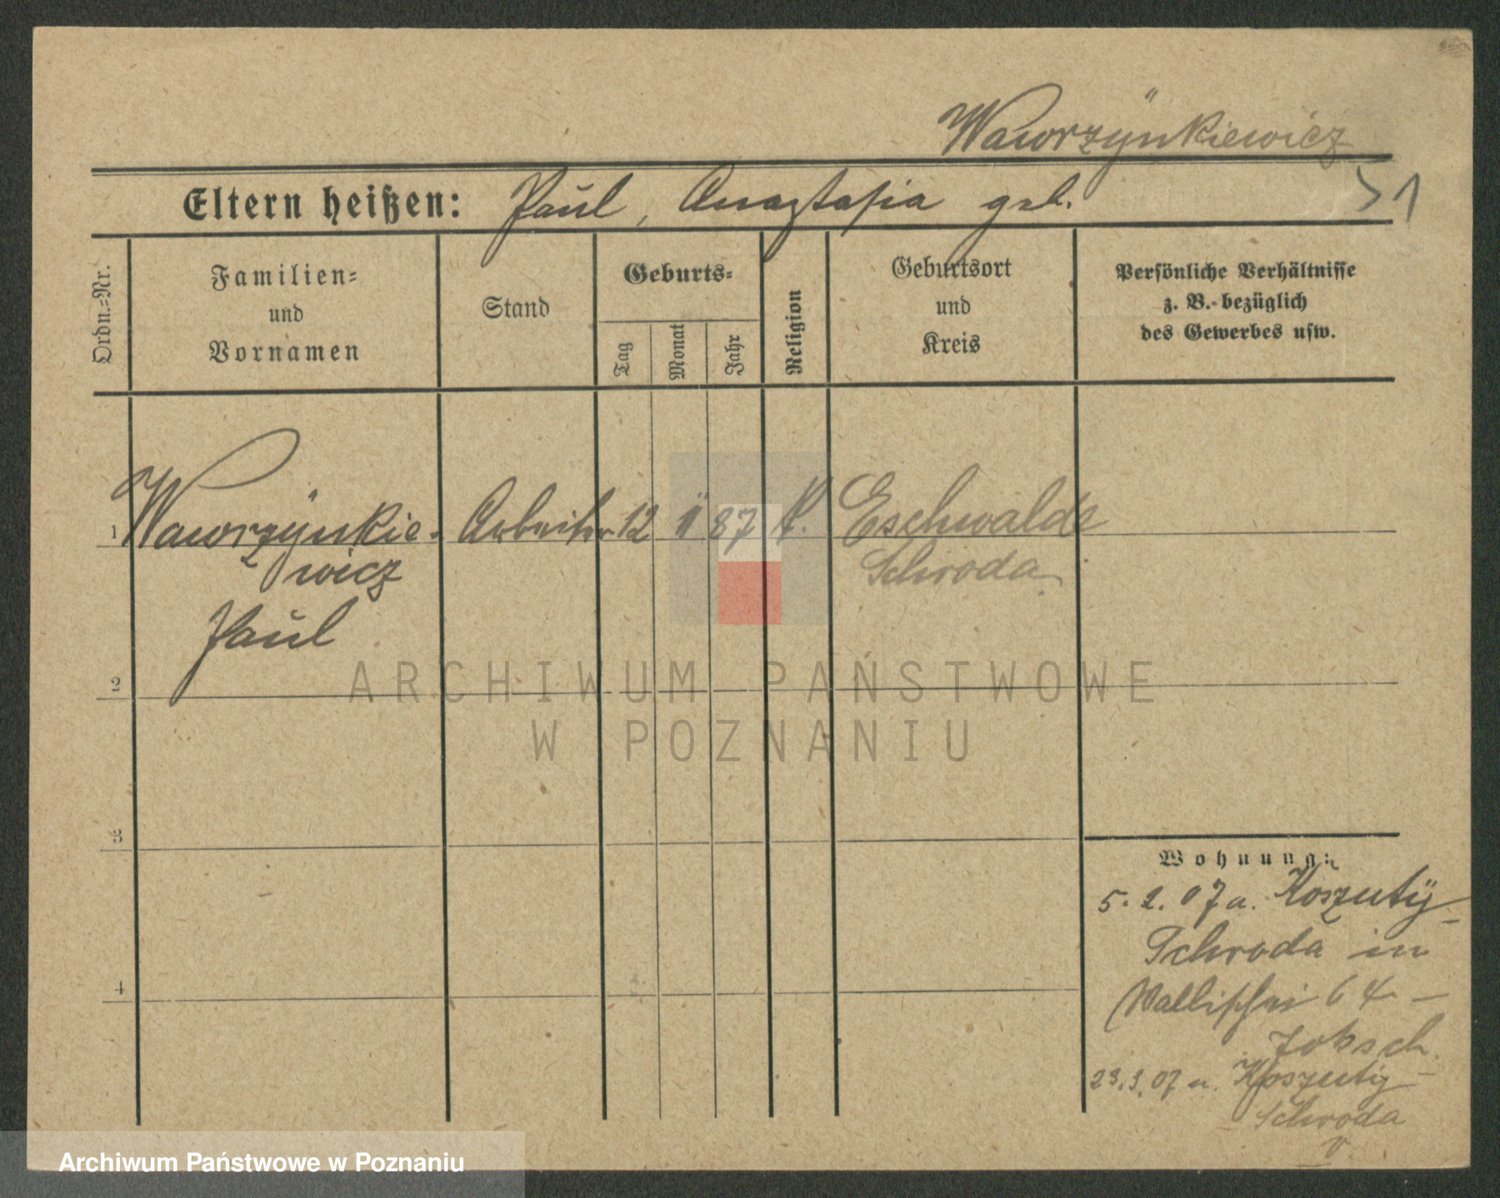 Wawrzÿnkiewicz
Eltern heißen: Paul, Anastasia geb.
Ordn.-Nr.
Familien-
und
Vornamen
Stand
Geburts-
Tag
Monat
Jahr
Religion
Geburtsort
und
Kreis
Persönliche Verhältnisse
z. B. bezüglich
des Gewerbes usw.
1 Wawrzÿnkie- Arbeiter 12 87 K. Eschwalde
wicz Schroda
Paul
2
ARCHIWUM PAŃSTWOWE
W POZNANIU
3
4
Wohnung:
5. 2. 07 a. Koszutÿ-
Schroda in
Wallischei 64 -
23.3.07 n. Koszutÿ-
Schroda
v.
Archiwum Państwowe w Poznaniu